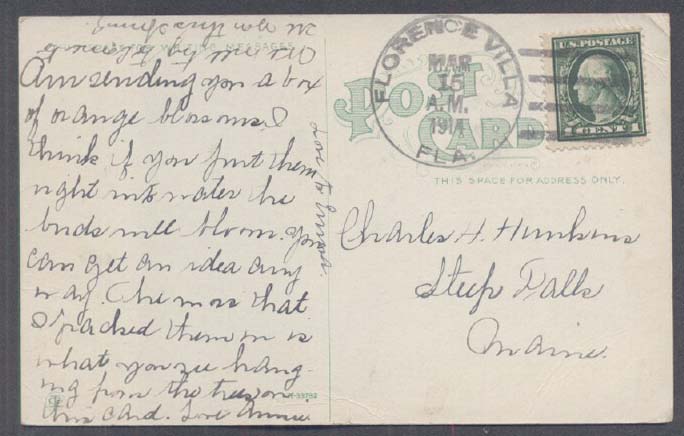 THIS SPACE FOR WRITING MESSAGES
Am sending you a box
of orange blossoms. I
think if you put them
right into water the
buds will bloom. You
can get an idea any
way. The moss that
I packed them in is
what you see hang-
ing from the trees on
this card. Love Annie
Love to
POST CARD
FLORENCE VILLA
MAR
15
A.M.
1914
FLA.
U.S. POSTAGE
1 CENT 1
THIS SPACE FOR ADDRESS ONLY.
Charles H. Hunkins
Steep Falls
Maine.